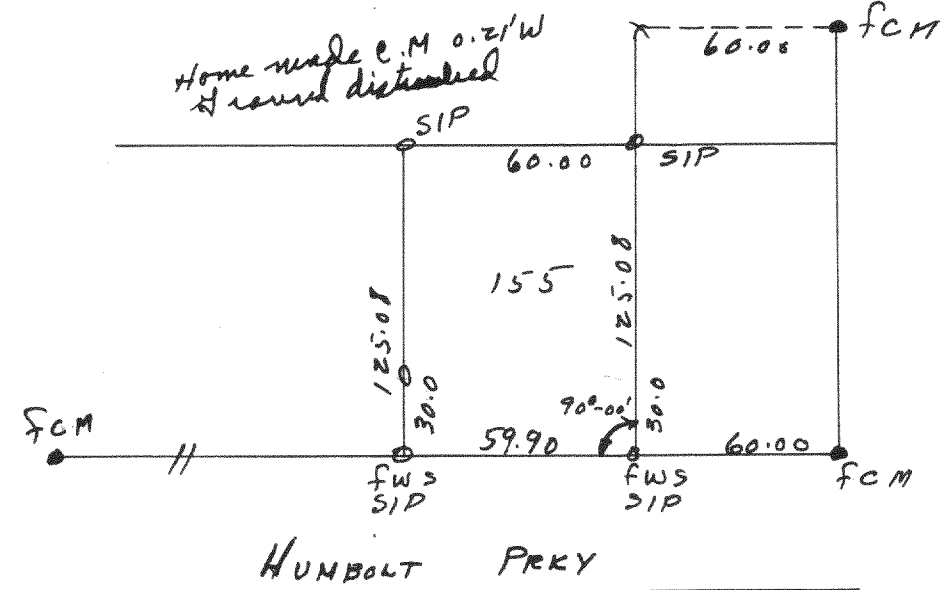 Home made C.M 0.21'W
Ground disturbed
60.00
fCM
SIP
60.00
SIP
155
125.08
125.08
30.0
30.0
90°-00'
fCM
59.90
60.00
fWS
SIP
fWS
SIP
fCM
HUMBOLT PRKY